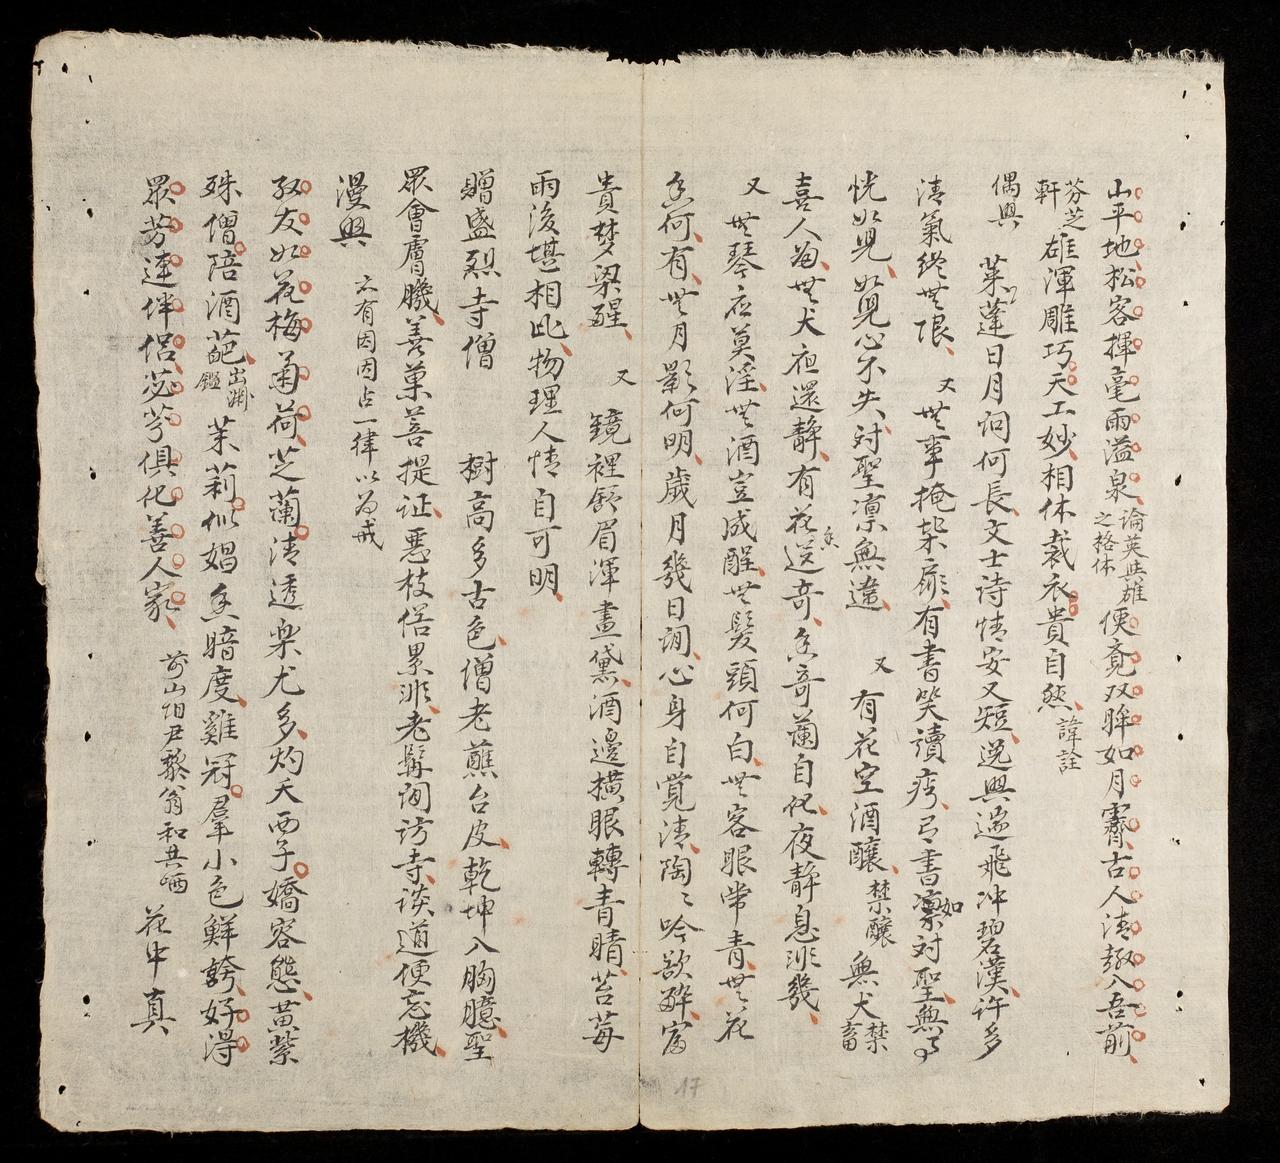 山平地松客揮毫雨溢泉論英與雄之格体便斍双眸如月霽古人清趣入吾前
芬芝軒雄渾雕巧天工妙相体裁衣貴自然諱詮
偶興 萊蓬日月詞何長文士詩情安又短逸興遄飛冲碧漢許多
清氣終無垠 又 無事掩柴扉有書笑讀 書如対聖無
恍如覓如覓心不失対聖凛無違 又 有花空酒釀禁釀無犬禁畜
喜人為無犬夜還靜有花送奇香奇蘭自化夜静息非幾
又 無琴应莫淫無酒豈成醒無髮頭何白無客眼常青無花
香何有無月影何明歲月幾日詢心身自覚清陶〻吟欲醉富
貴梦梁醒 又 鏡裡舒眉渾畫黛酒邊横眼轉青睛苔莓
雨後堪相比物理人情自可明
贈盛烈寺僧 樹高多古色僧老蘸台皮乾坤入胸臆聖
眾會膚機善菓菩提证惡枝偌累非老髯詢访寺谈道便忘機
漫興 六有因因占一律以为戒
取友如花梅菊荷芝蘭清透楽尤多灼夭西子嬌容態黃紫
殊僧陪酒葩出淵鑑茉莉似娼香暗度雞冠羣小色鮮誇好得
眾芳連伴侶苾芩俱化善人家 前山伯尹黎翁和其哂 花中真